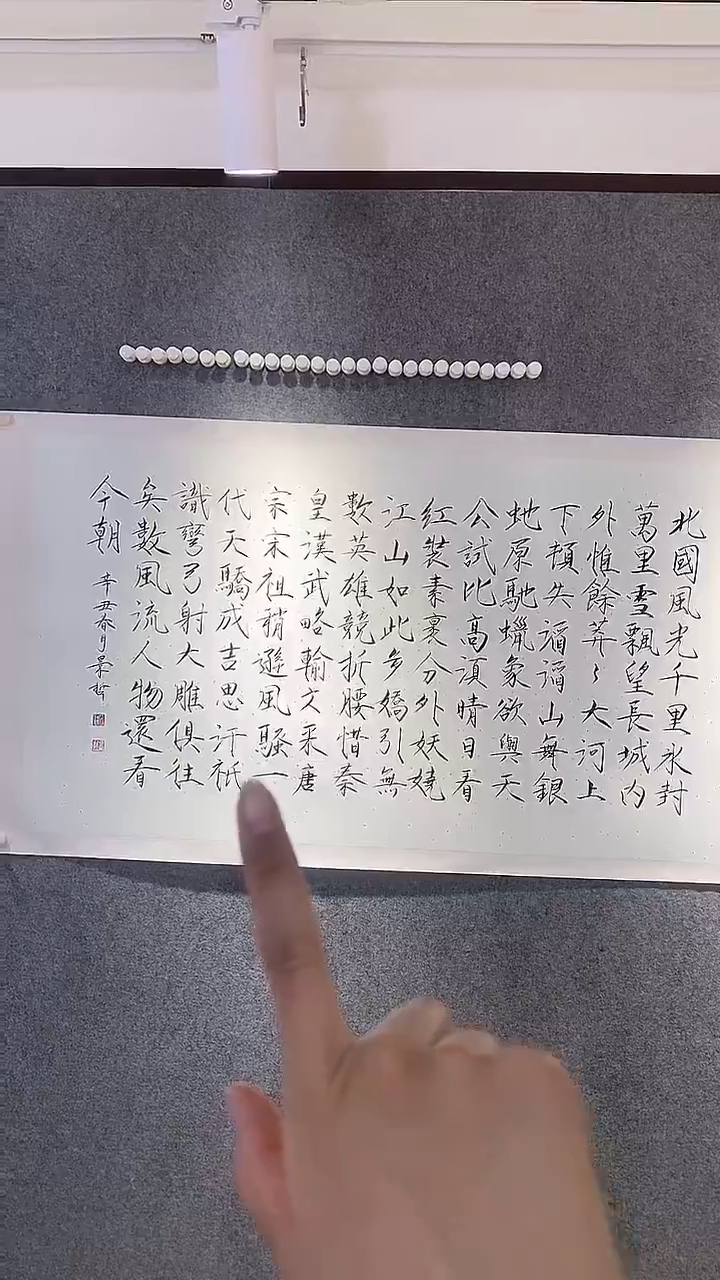 北國風光千里氷封
萬里雪飄望長城内
外惟餘莽〻大河上
下頓失滔滔山舞銀
虵原馳蠟象欲與天
公試比高須晴日看
紅裝素裹分外妖嬈
江山如此多嬌引無
數英雄競折腰惜秦
皇漢武略輸文采唐
宗宋祖稍遜風騷一
代天驕成吉思汗祇
識彎弓射大雕俱往
矣數風流人物還看
今朝
辛丑春月景哲